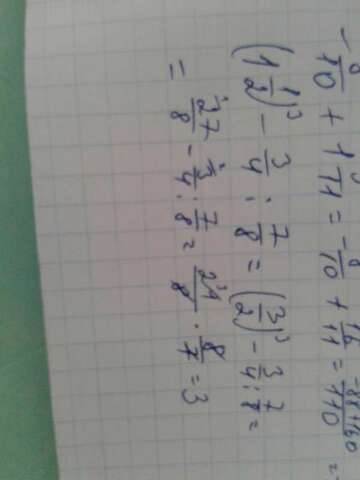 -8/10 + 1 5/11 = -8/10 + 16/11 = -88+160/110 =
(1 1/2)³ - 3/4 : 7/8 = (3/2)³ - 3/4 : 7/8 =
= 27/8 - 3/4 : 7/8 = 21/8 · 8/7 = 3